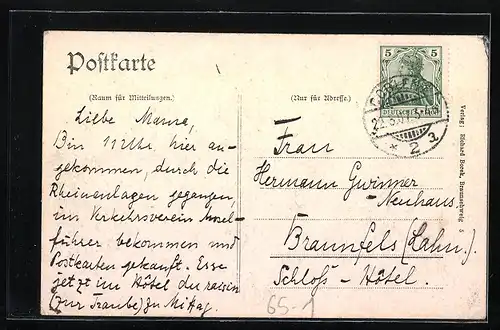 Postkarte
(Raum für Mitteilungen.)
(Nur für Adresse.)
5 5
DEUTSCHES REICH
Liebe Mama,
Bin 11 Uhr hier an-
gekommen, durch die
Rheinanlagen gegangen,
im Verkehrsverein Mosel-
führer bekommen und
Postkarten gekauft. Esse
jetzt im Hôtel du raisin
(zur Traube) zu Mittag.
Frau
Hermann Gwinner-
Neuhaus
Braunfels (Lahn).
Schloß-Hôtel.
65.-
Verlag: Richard Borek, Braunschweig 5